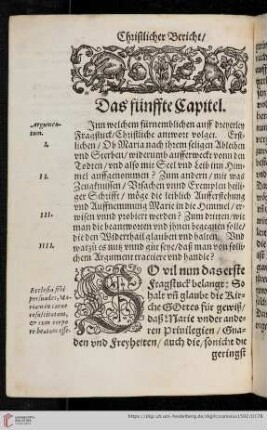 Christlicher Bericht/
Das fünffte Capitel.
Argumen-
tum.
Inn welchem fürnemblichen auff dreyerley
Fragstuck/ Christliche antwort volget. Erst-
lichen/ Ob Maria nach jhrem seligen Ableiben
I.
vnd Sterben/ widerumb aufferweckt vonn den
Todten/ vnd also mit Seel vnd Leib inn Him-
II.
mel auffgenommen? Zum andern/ mit was
Zeugknussen/ Vrsachen vnnd Exemplen heili-
ger Schrifft/ möge die leiblich Aufferstehung
vnd Auffnemmung Marie in die Himmel/ er-
III.
wisen vnnd probiert werden? Zum dritten/ wie
man die beantworten vnd jhnen begegnen solle/
IIII.
die den Widerhall glauben halten. Vnd
warzu es nutz vnnd gůt sey/ daß man von soli-
chem Argument tractiere vnd handle?
Ecclesia sibi
persuadet, Ma-
riam in carne
resuscitatam,
& cum corpo-
re beatam esse.
SO vil nun das erste
Fragstuck belangt: So
halt vñ glaubt die Kir-
che GOttes für gewiß/
daß Marie vnder ande-
ren Privilegien/ Gna-
den vnd Freyheiten/ auch die/ so nicht die
geringst
https://digi.ub.uni-heidelberg.de/diglit/canisius1592/0178